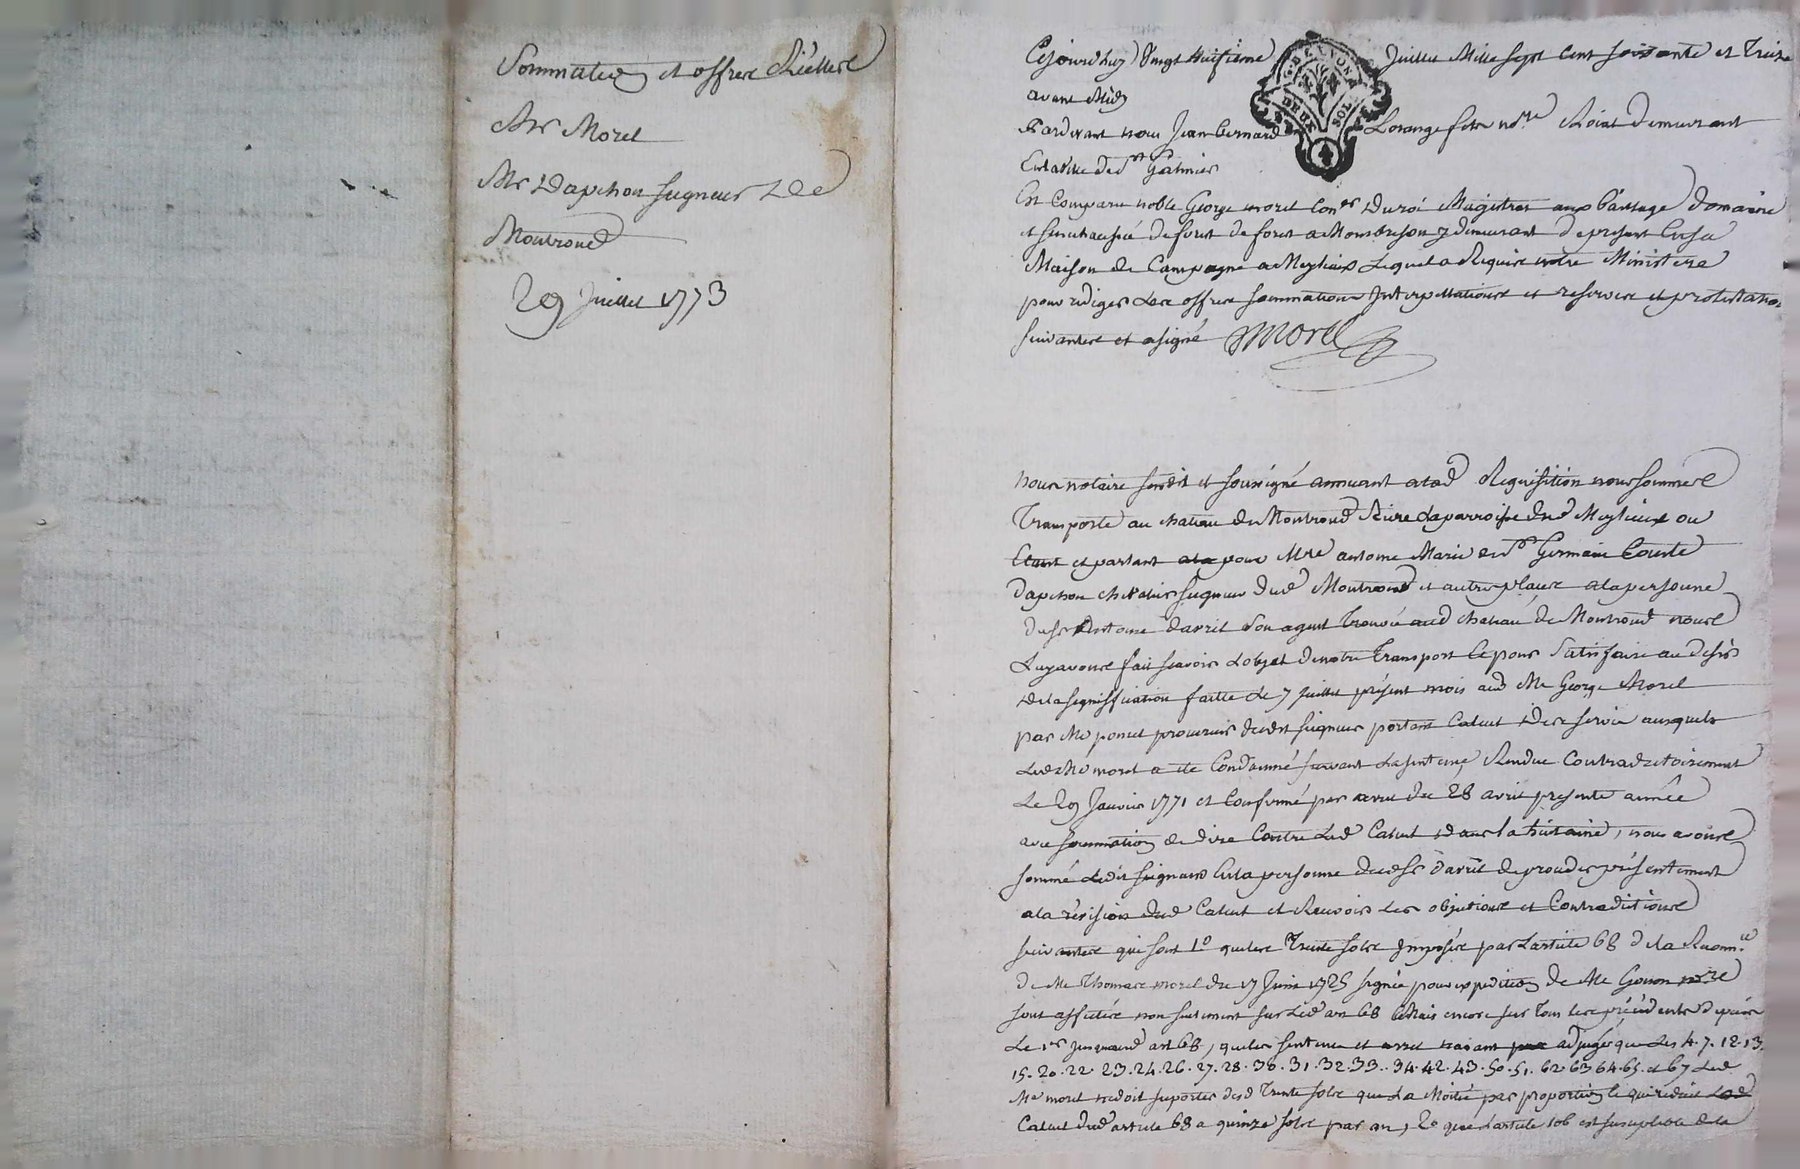 Sommation et offres Réelles
Mr Morel
Mr Dapchon seigneur De
Montrond
29 Juillet 1773
Cejourdhuy Vingt Huitieme Juillet Mille sept cent soixante et Treize
avant Midy
Pardevant nous Jean Bernard Lorange fils nore Roial demeurant
En la Ville de st Galmier
G. DE LYON
DEUX SOLS
4
Est Comparu noble George morel Coner Du roi Magistrat aux Bailliage Domaine
et senechaussée de forest a Montbrison y demeurant de present En sa
Maison de Campagne a Meylieux Lequel a Requis notre Ministere
pour rediger Les offres sommations Interpellations et reserves et protestations
suivantes et a signé Morel
nous notaire susdit et soussigné annuant a lad Requisition nous sommes
Transporté au chateau de Montrond Scize Laparroisse dud Meylieux ou
Etant et parlant pour Mre antoine Marie de st Germain Comte
Dapchon chevalier seigneur dud Montrond et autres places a la personne
du sr Antoine davril son agent Trouvé aud chateau de Montrond nous
Luy avons fait scavoir Lobjet de notre Transport Et pour Satisfaire au desir
De la signiffication faitte Le 7 Juillet présent mois aud Me George Morel
par Me poncet procureur dudit seigneur portant Calcul Des servis auxquels
Led Me morel a été Condamné suivant La sentence Rendue Contradictoirement
Le 29 Janvier 1771 et Confirmé par arret du 28 avril presente année
avec sommation de dire Contre Led Calcul dans la huitaine, nous avons
sommé Ledit seigneur En la personne dud sr davril de proceder présentement
a la révision dud Calcul et Recevoir Les objections et Contradictions
suivantes qui sont 1o que les Trente sols Imposés par Larticle 68 de la Reconnce
de Me Thomas morel du 17 Juin 1725 signée pour expedition de Me Gonon nore
sont affectés non seulement sur Led art 68 Mais encore sur Tous les précédents depuis
Le 1er Jusquaud art 68, que les sentence et arret naiant adjugé que Les 4. 7. 12. 13.
15. 20. 22. 23. 24. 26. 27. 28. 30. 31. 32. 33. 34. 42. 43. 50. 51. 62. 63 64. 65. et 67 Led
Me morel ne doit suporter desd Trente sols que La Moitié par proportion Ce qui reduit
Calcul dud article 68 a quinze sols par an, 2o que Larticle 106 est susceptible de la